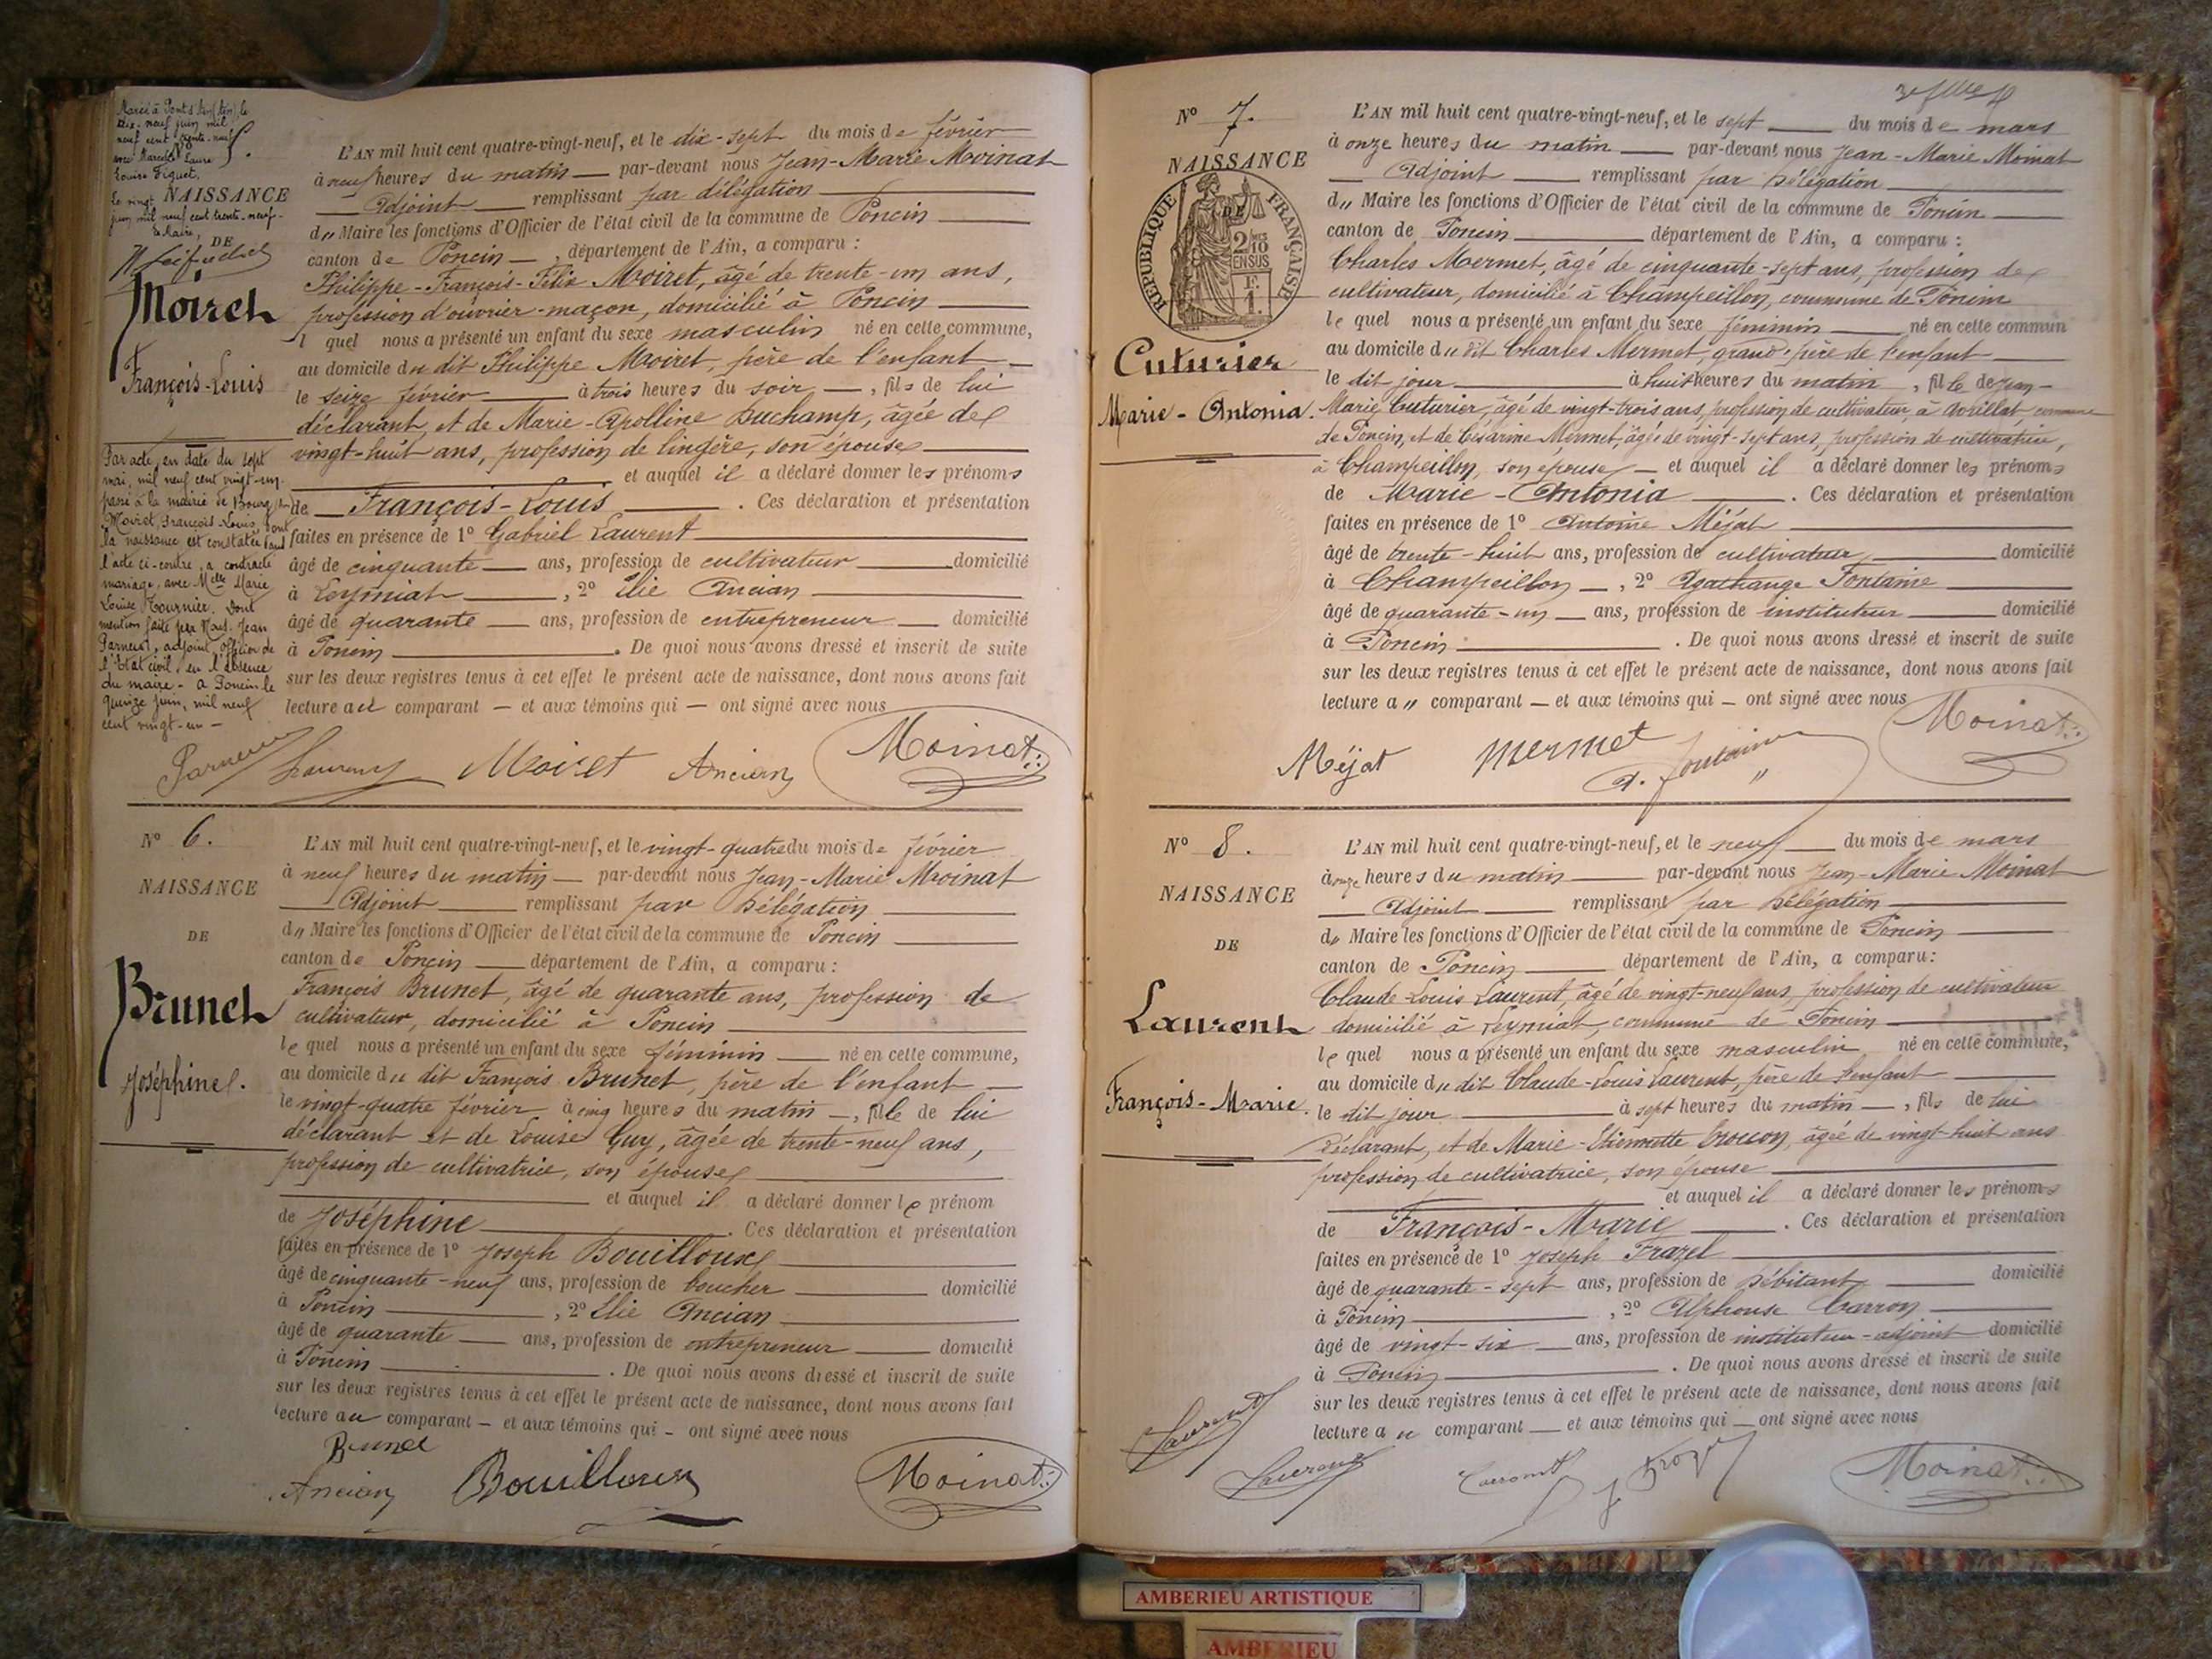 Marié à Pont d'Ain (Ain) le
dix-neuf juin mil
neuf cent trente-neuf
avec Marcelle Laure
Louise Piquet.
le vingt
juin mil neuf cent trente-neuf.
Le Maire,
NAISSANCE
DE
Moiret
François-Louis
Par acte, en date du sept
mai, mil neuf cent vingt-un.
passé à la mairie de Bourg (Ain)
Moiret, François Louis, dont
la naissance est constatée dans
l'acte ci-contre, a contracté
mariage, avec Melle Marie
Louise Tournier. Dont
mention faite par Nous. Jean
Parneux, adjoint, officier de
l'Etat civil en l'absence
du maire - à Poncin le
quinze juin, mil neuf
cent vingt-un -
L'AN mil huit cent quatre-vingt-neuf, et le dix-sept du mois de février
à neuf heures du matin par-devant nous Jean-Marie Moinat
Adjoint remplissant par délégation
d" Maire les fonctions d'Officier de l'état civil de la commune de Poncin
canton de Poncin, département de l'Ain, a comparu :
Philippe-François-Félix Moiret, âgé de trente-un ans,
profession d'ouvrier-maçon, domicilié à Poncin
l quel nous a présenté un enfant du sexe masculin né en cette commune,
au domicile du dit Philippe Moiret, père de l'enfant
le seize février à trois heures du soir, fils de lui
déclarant, et de Marie-Apolline Duchamp, âgée de
vingt-huit ans, profession de lingère, son épouse
et auquel il a déclaré donner les prénoms
de François-Louis. Ces déclaration et présentation
faites en présence de 1° Gabriel Laurent
âgé de cinquante ans, profession de cultivateur domicilié
à Leymiat, 2° Elie Ancian
âgé de quarante ans, profession de entrepreneur domicilié
à Poncin. De quoi nous avons dressé et inscrit de suite
sur les deux registres tenus à cet effet le présent acte de naissance, dont nous avons fait
lecture au comparant — et aux témoins qui — ont signé avec nous
Laurent Moiret Ancian Moinat
N° 6.
NAISSANCE
DE
Brunet
Joséphine.
L'AN mil huit cent quatre-vingt-neuf, et le vingt-quatre du mois de février
à neuf heures du matin par-devant nous Jean-Marie Moinat
Adjoint remplissant par délégation
d" Maire les fonctions d'Officier de l'état civil de la commune de Poncin
canton de Poncin département de l'Ain, a comparu :
François Brunet, âgé de quarante ans, profession de
cultivateur, domicilié à Poncin
le quel nous a présenté un enfant du sexe féminin né en cette commune,
au domicile du dit François Brunet, père de l'enfant
le vingt-quatre février à cinq heures du matin, fille de lui
déclarant et de Louise Guy, âgée de trente-neuf ans,
profession de cultivatrice, son épouse
et auquel il a déclaré donner le prénom
de Joséphine. Ces déclaration et présentation
faites en présence de 1° Joseph Bouilloux
âgé de cinquante-neuf ans, profession de boucher domicilié
à Poncin, 2° Elie Ancian
âgé de quarante ans, profession de entrepreneur domicilié
à Poncin. De quoi nous avons dressé et inscrit de suite
sur les deux registres tenus à cet effet le présent acte de naissance, dont nous avons fait
lecture au comparant — et aux témoins qui — ont signé avec nous
Brunet
Ancian Bouilloux Moinat
N° 7.
NAISSANCE
RÉPUBLIQUE FRANÇAISE
DE
2/10 EN SUS
1 F.
Cuturier
Marie-Antonia.
L'AN mil huit cent quatre-vingt-neuf, et le sept du mois de mars
à onze heures du matin par-devant nous Jean-Marie Moinat
Adjoint remplissant par délégation
d" Maire les fonctions d'Officier de l'état civil de la commune de Poncin
canton de Poncin département de l'Ain, a comparu :
Charles Mermet, âgé de cinquante-sept ans, profession de
cultivateur, domicilié à Champeillon, commune de Poncin
le quel nous a présenté un enfant du sexe féminin né en cette commun
au domicile du dit Charles Mermet, grand-père de l'enfant
le dit jour à huit heures du matin, fille de Jean-
Marie Cuturier, âgé de vingt-trois ans, profession de cultivateur, à commune
de Poncin, et de Césarine Mermet, âgée de vingt-sept ans, profession de cultivatrice,
à Champeillon, son épouse — et auquel il a déclaré donner les prénoms
de Marie-Antonia. Ces déclaration et présentation
faites en présence de 1° Antoine Méjat
âgé de trente-huit ans, profession de cultivateur domicilié
à Champeillon, 2° Agathange Fontaine
âgé de quarante-un ans, profession de instituteur domicilié
à Poncin. De quoi nous avons dressé et inscrit de suite
sur les deux registres tenus à cet effet le présent acte de naissance, dont nous avons fait
lecture a " comparant — et aux témoins qui — ont signé avec nous
Méjat Mermet A. Fontaine Moinat
N° 8.
NAISSANCE
DE
Laurent
François-Marie.
L'AN mil huit cent quatre-vingt-neuf, et le neuf du mois de mars
à onze heures du matin par-devant nous Jean-Marie Moinat
Adjoint remplissant par délégation
d" Maire les fonctions d'Officier de l'état civil de la commune de Poncin
canton de Poncin département de l'Ain, a comparu :
Claude-Louis Laurent, âgé de vingt-neuf ans, profession de cultivateur
domicilié à Leymiat, commune de Poncin
le quel nous a présenté un enfant du sexe masculin né en cette commune,
au domicile du dit Claude-Louis Laurent, père de l'enfant
le dit jour à sept heures du matin, fils de lui
déclarant, et de Marie-Etiennette, âgée de vingt-huit ans
profession de cultivatrice, son épouse
et auquel il a déclaré donner les prénoms
de François-Marie. Ces déclaration et présentation
faites en présence de 1° Joseph Frazel
âgé de quarante-sept ans, profession de débitant domicilié
à Poncin, 2° Alphonse Carron
âgé de vingt-six ans, profession de instituteur-adjoint domicilié
à Poncin. De quoi nous avons dressé et inscrit de suite
sur les deux registres tenus à cet effet le présent acte de naissance, dont nous avons fait
lecture a u comparant — et aux témoins qui — ont signé avec nous
Laurent
Laurent Moinat
AMBERIEU ARTISTIQUE
AMBERIEU